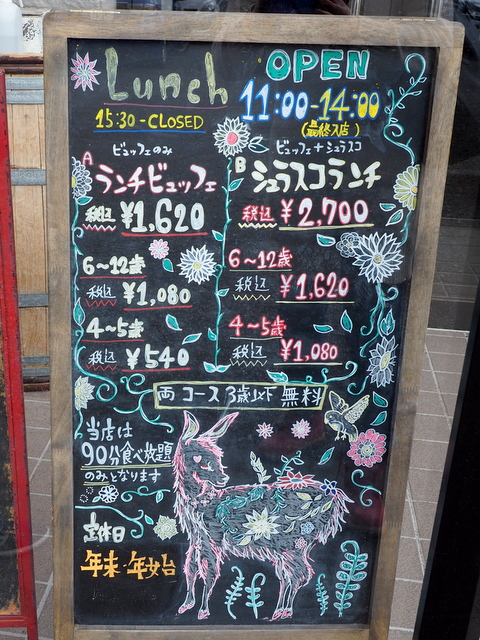 Lunch OPEN
11:00-14:00
15:30-CLOSED (最終入店)
ビュッフェのみ
A ランチビュッフェ
税込 ¥1,620
6〜12歳
税込 ¥1,080
4〜5歳
税込 ¥540
ビュッフェ+シュラスコ
B シュラスコランチ
税込 ¥2,700
6〜12歳
税込 ¥1,620
4〜5歳
税込 ¥1,080
両コース3歳以下無料
当店は
90分食べ放題
のみとなります
定休日
年末・年始台